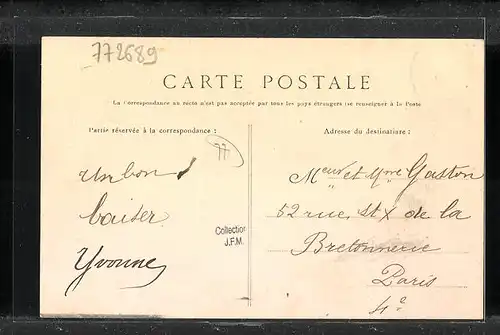 772689
CARTE POSTALE
La Correspondance au recto n'est pas acceptée par tous les pays étrangers (se renseigner à la Poste
Partie réservée à la correspondance :
Adresse du destinataire :
77
un bon
baiser
Yvonne
Collection
J.F.M.
Meur et Mme Gaston
52 rue St X de la
Bretonnerie
Paris
4e